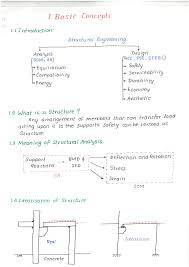 1. Basic Concepts
1.1 Introduction:
Structural Engineering
Analysis
Design
→ Equilibrium
→ Compatibility
→ Energy
→ Safety
→ Serviceability
→ Durability
→ Economy
→ Aesthetic
1.2 What is a Structure?
Any arrangement of members that can transfer load
acting upon it to the supports safely can be termed as
Structure.
1.3 Meaning of Structural Analysis.
Support
Reactions
BMD &
SFD
Deflection and Rotation
Stress
Strain
SOM
1.4 Idealisation of Structure:
Real
Concrete